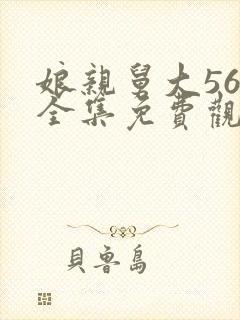 娘親舅大56
全集免費觀
貝魯島